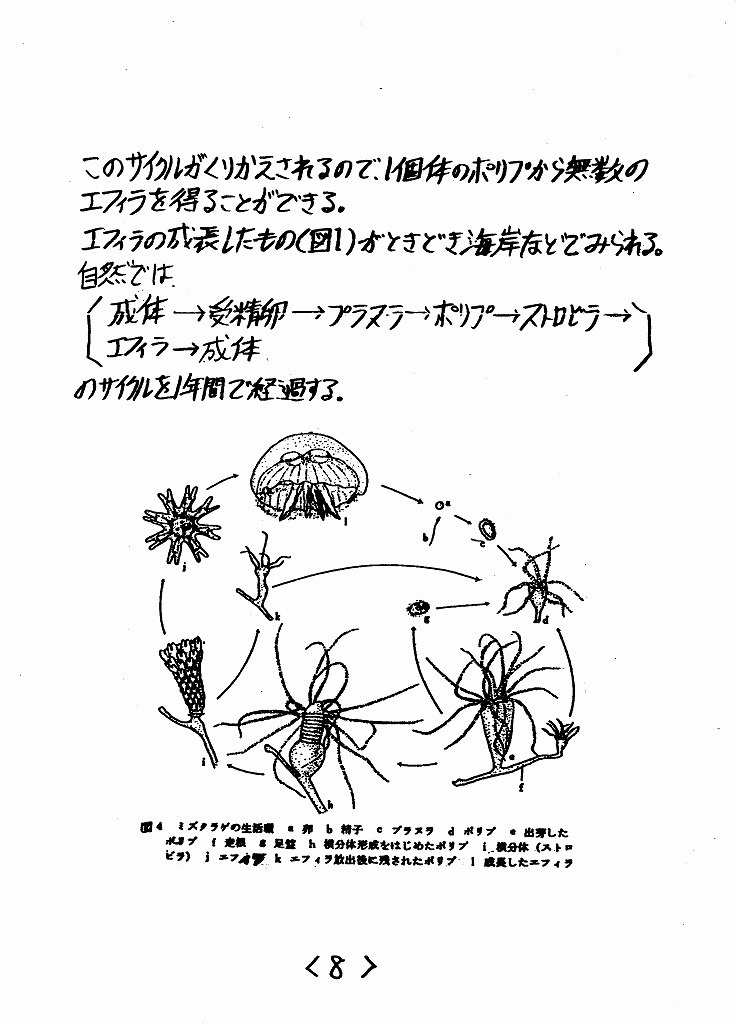 このサイクルがくりかえされるので、1個体のポリプから無数の
エフィラを得ることができる。
エフィラの成長したもの(図1)がときどき海岸などでみられる。
自然では
成体→受精卵→プラヌラ→ポリプ→ストロビラ→
エフィラ→成体
のサイクルを1年間で経過する。
j
l
a
b
c
k
g
d
i
h
e
f
図4 ミズクラゲの生活環 a 卵 b 精子 c プラヌラ d ポリプ e 出芽した
ポリプ f 走根 g 足盤 h 横分体形成をはじめたポリプ i 横分体(ストロ
ビラ) j エフィラ k エフィラ放出後に残されたポリプ l 成長したエフィラ
<8>